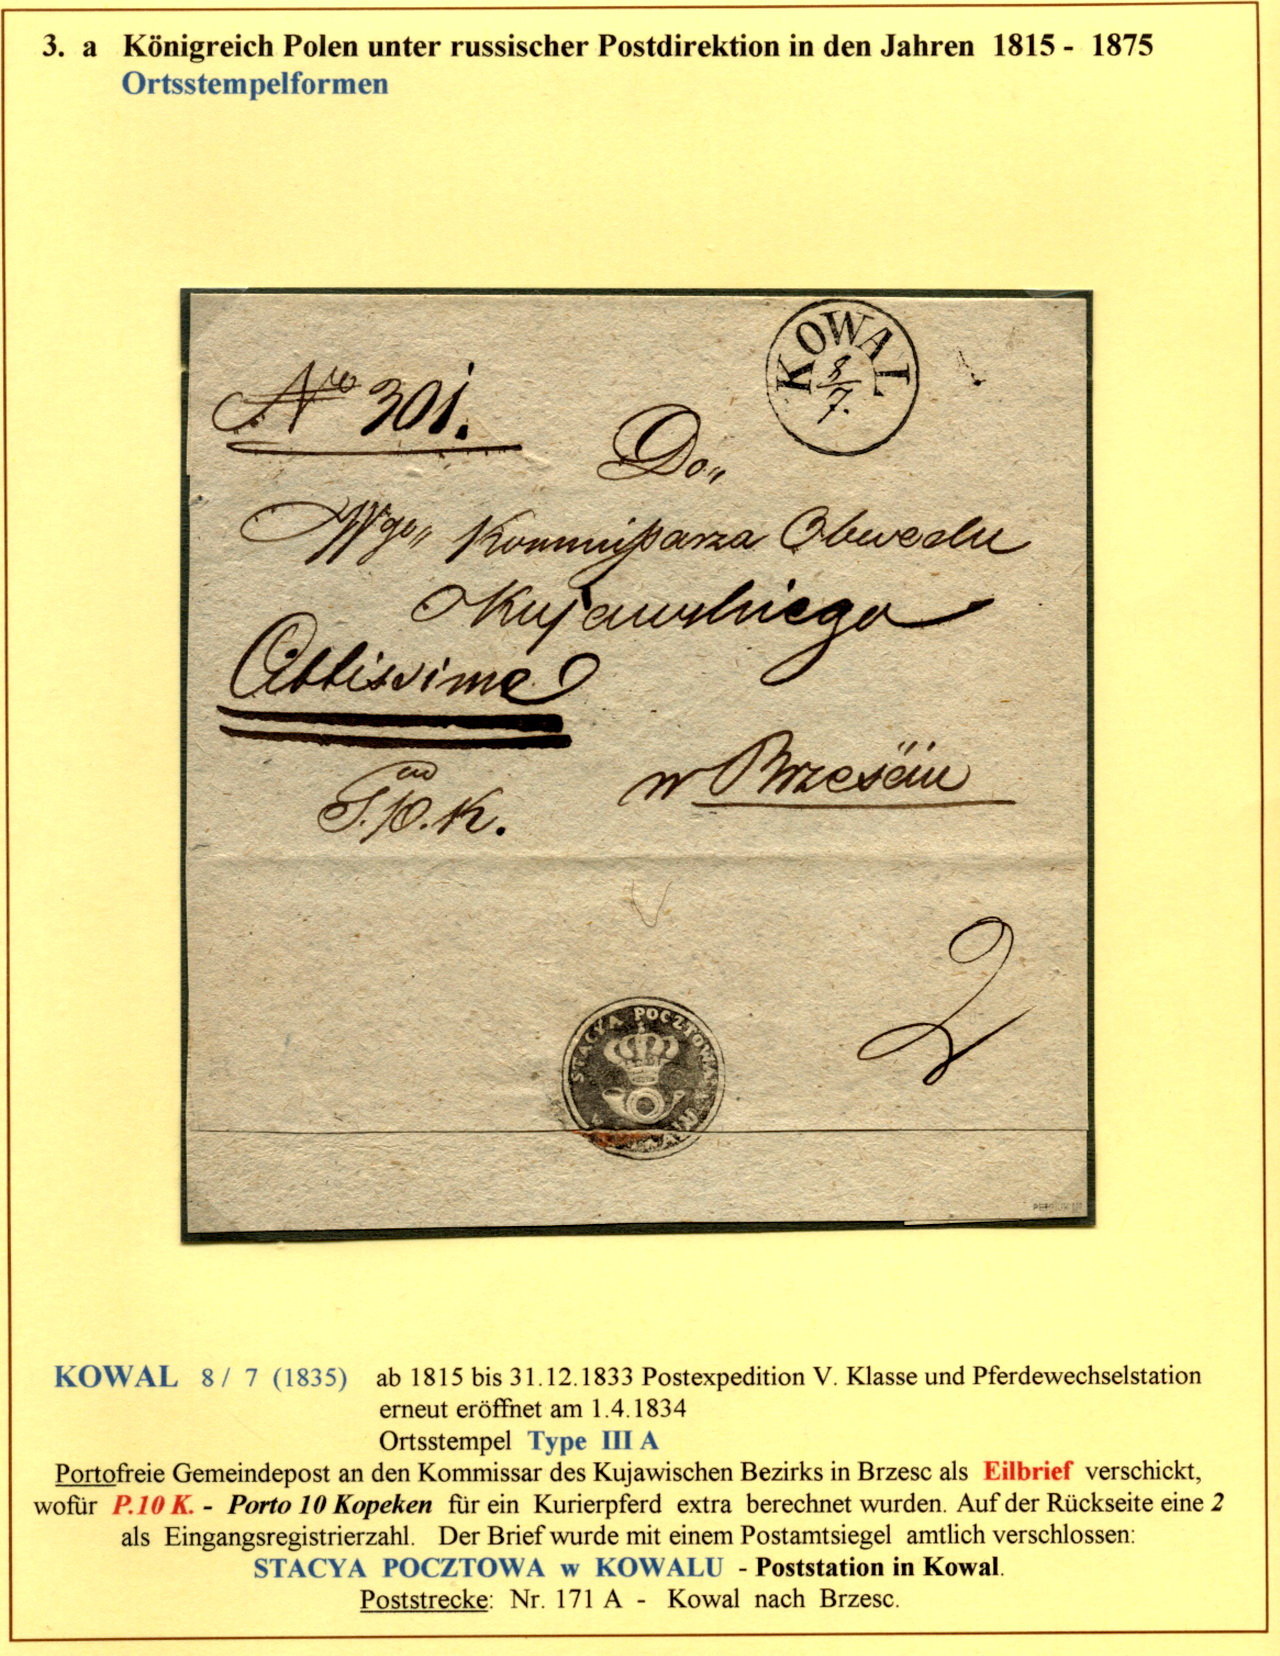 3. a Königreich Polen unter russischer Postdirektion in den Jahren 1815 - 1875
Ortsstempelformen
KOWAL
8/7.
No 301.
Do
Wgo Kommissarza Obwodu
Kujawskiego
Citissime
w Brześciu
P.10.K.
2
STACYA POCZTOWA
KOWAL 8 / 7 (1835) ab 1815 bis 31.12.1833 Postexpedition V. Klasse und Pferdewechselstation
erneut eröffnet am 1.4.1834
Ortsstempel Type III A
Portofreie Gemeindepost an den Kommissar des Kujawischen Bezirks in Brzesc als Eilbrief verschickt,
wofür P.10 K. - Porto 10 Kopeken für ein Kurierpferd extra berechnet wurden. Auf der Rückseite eine 2
als Eingangsregistrierzahl. Der Brief wurde mit einem Postamtsiegel amtlich verschlossen:
STACYA POCZTOWA w KOWALU - Poststation in Kowal.
Poststrecke: Nr. 171 A - Kowal nach Brzesc.